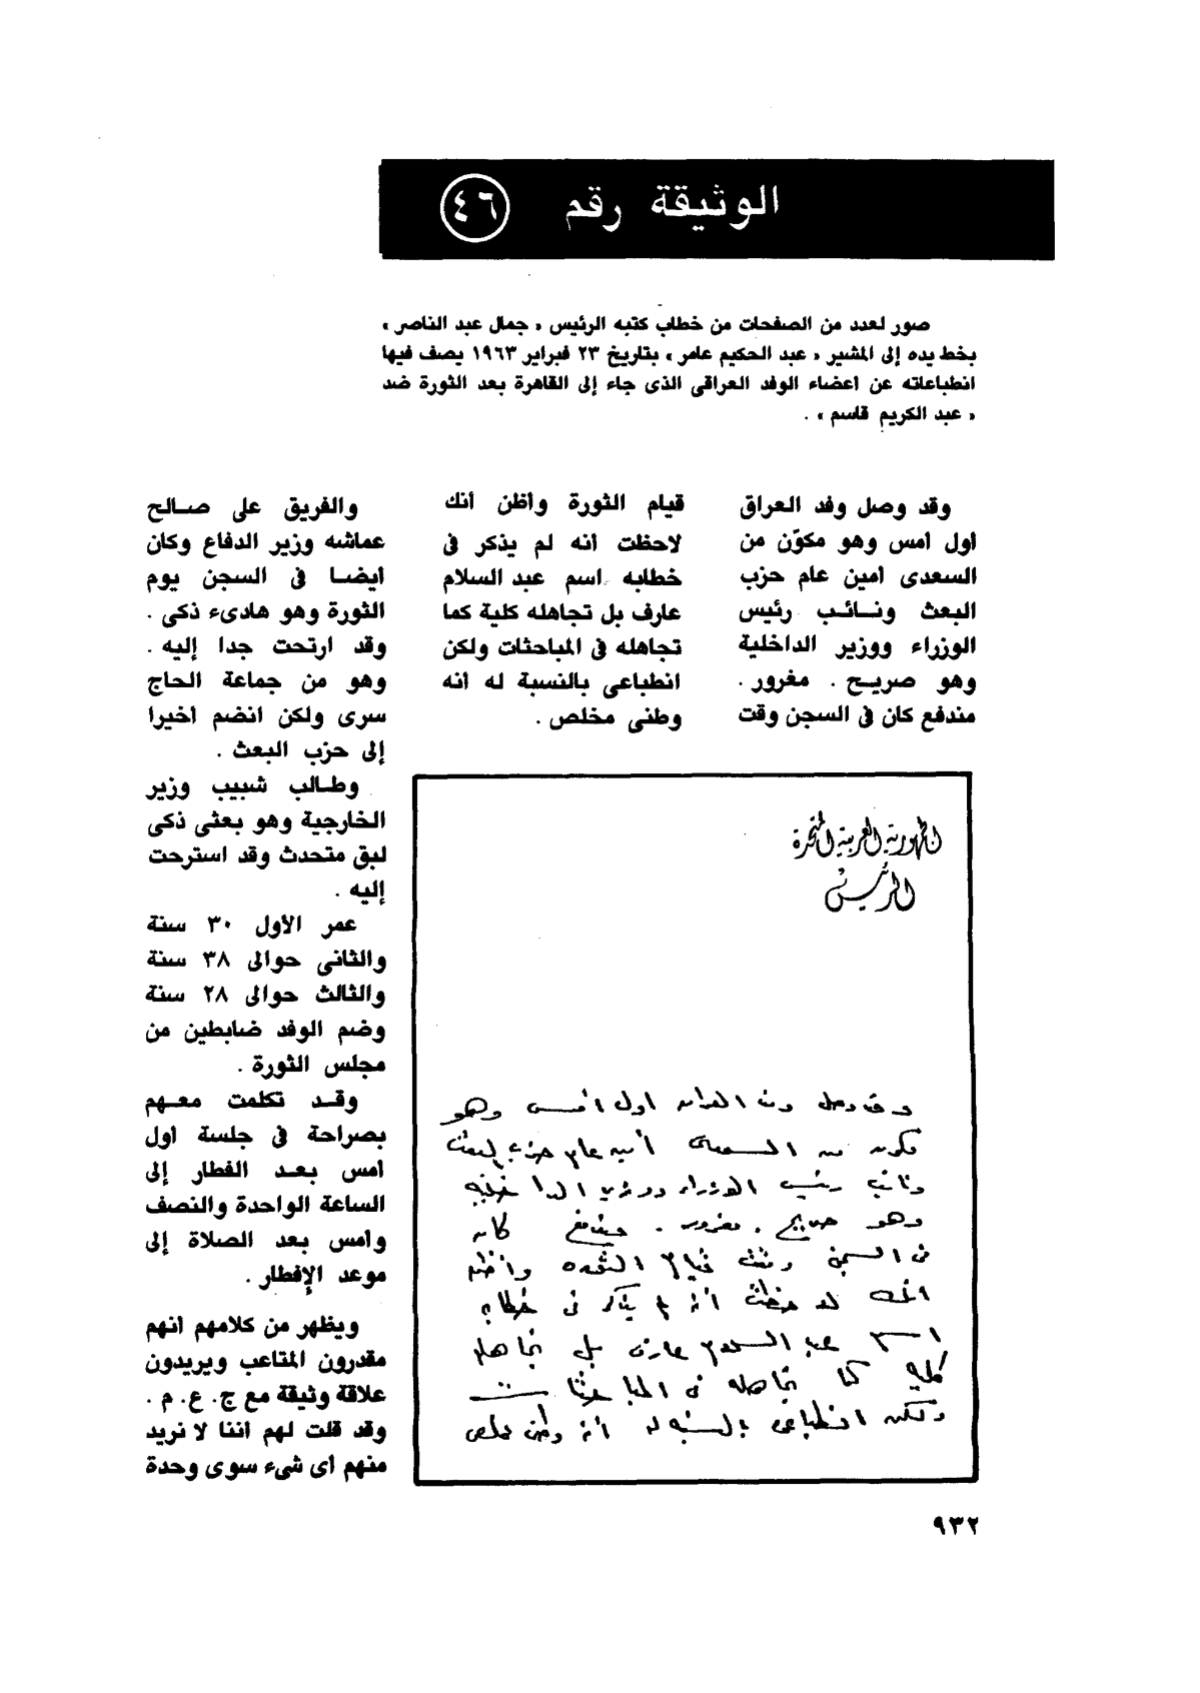 الوثيقة رقم ٤٦
صور لعدد من الصفحات من خطاب كتبه الرئيس « جمال عبد الناصر »
بخط يده إلى المشير « عبد الحكيم عامر » بتاريخ ٢٣ فبراير ١٩٦٣ يصف فيها
انطباعاته عن اعضاء الوفد العراقى الذى جاء إلى القاهرة بعد الثورة ضد
« عبد الكريم قاسم » .
وقد وصل وفد العراق
اول امس وهو مكوّن من
السعدى امين عام حزب
البعث ونـائـب رئيس
الوزراء ووزير الداخلية
وهو صريـح . مغرور .
مندفع كان فى السجن وقت
قيام الثورة واظن انك
لاحظت انه لم يذكر فى
خطابه اسم عبد السلام
عارف بل تجاهله كلية كما
تجاهله فى المباحثات ولكن
انطباعى بالنسبة له انه
وطنى مخلص .
والفريق على صـالح
عماشه وزير الدفاع وكان
ايضـا فى السجن يوم
الثورة وهو هادىء ذكى .
وقد ارتحت جدا إليه .
وهو من جماعة الحاج
سرى ولكن انضم اخيرا
إلى حزب البعث .
وطـالب شبيب وزير
الخارجية وهو بعثى ذكى
لبق متحدث وقد استرحت
إليه .
عمر الأول ٣٠ سنة
والثانى حوالى ٣٨ سنة
والثالث حوالى ٢٨ سنة
وضم الوفد ضابطين من
مجلس الثورة .
وقـد تكلمت معـهم
بصراحة فى جلسة اول
امس بعـد الفطار إلى
الساعة الواحدة والنصف
وامس بعد الصلاة إلى
موعد الإفطار .
ويظهر من كلامهم انهم
مقدرون المتاعب ويريدون
علاقة وثيقة مع ج . ع . م .
وقد قلت لهم اننا لا نريد
منهم اى شىء سوى وحدة
الجمهورية العربية المتحدة
الرئيس
وقد وصل وفد العراق اول أمس وهو
مكون من السعدى أمين عام حزب البعث
ونائب رئيس الوزراء ووزير الداخلية
وهو صريح . مغرور . مندفع كان
فى السجن وقت قيام الثورة واظن
انك لاحظت أنه لم يذكر فى خطابه
اسم عبد السلام عارف بل تجاهله
كلية كما تجاهله فى المباحثات
ولكن انطباعى بالنسبة له أنه وطنى مخلص
٩٣٢